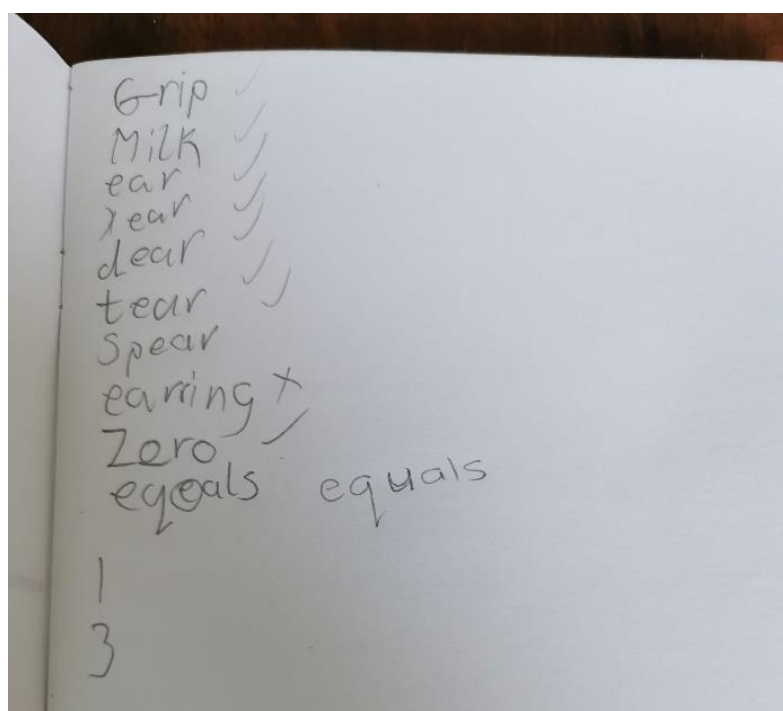 Grip ✓
Milk ✓
ear ✓
year ✓
dear ✓
tear ✓
Spear ✓
earring x
Zero ✓
eqeals equals
1
3